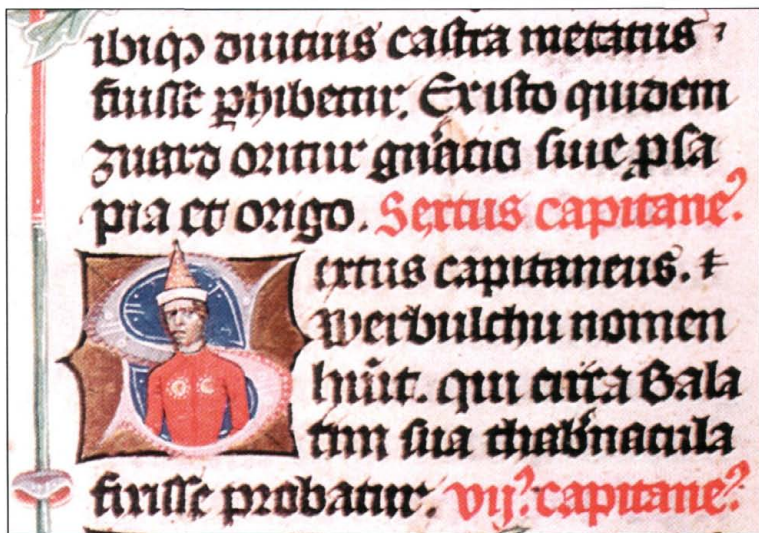 ibiq diutius castra metatus
fuisse phibetur. Ex isto quidem
zuard oritur gn̄acio siue psa
pia et origo. Sextus capitane⁹.
extus capitaneus. t
werbulchu nomen
hūit. qui circa Bala
tun sua thab̄nacula
fixisse probatur. vij⁹. capitane⁹